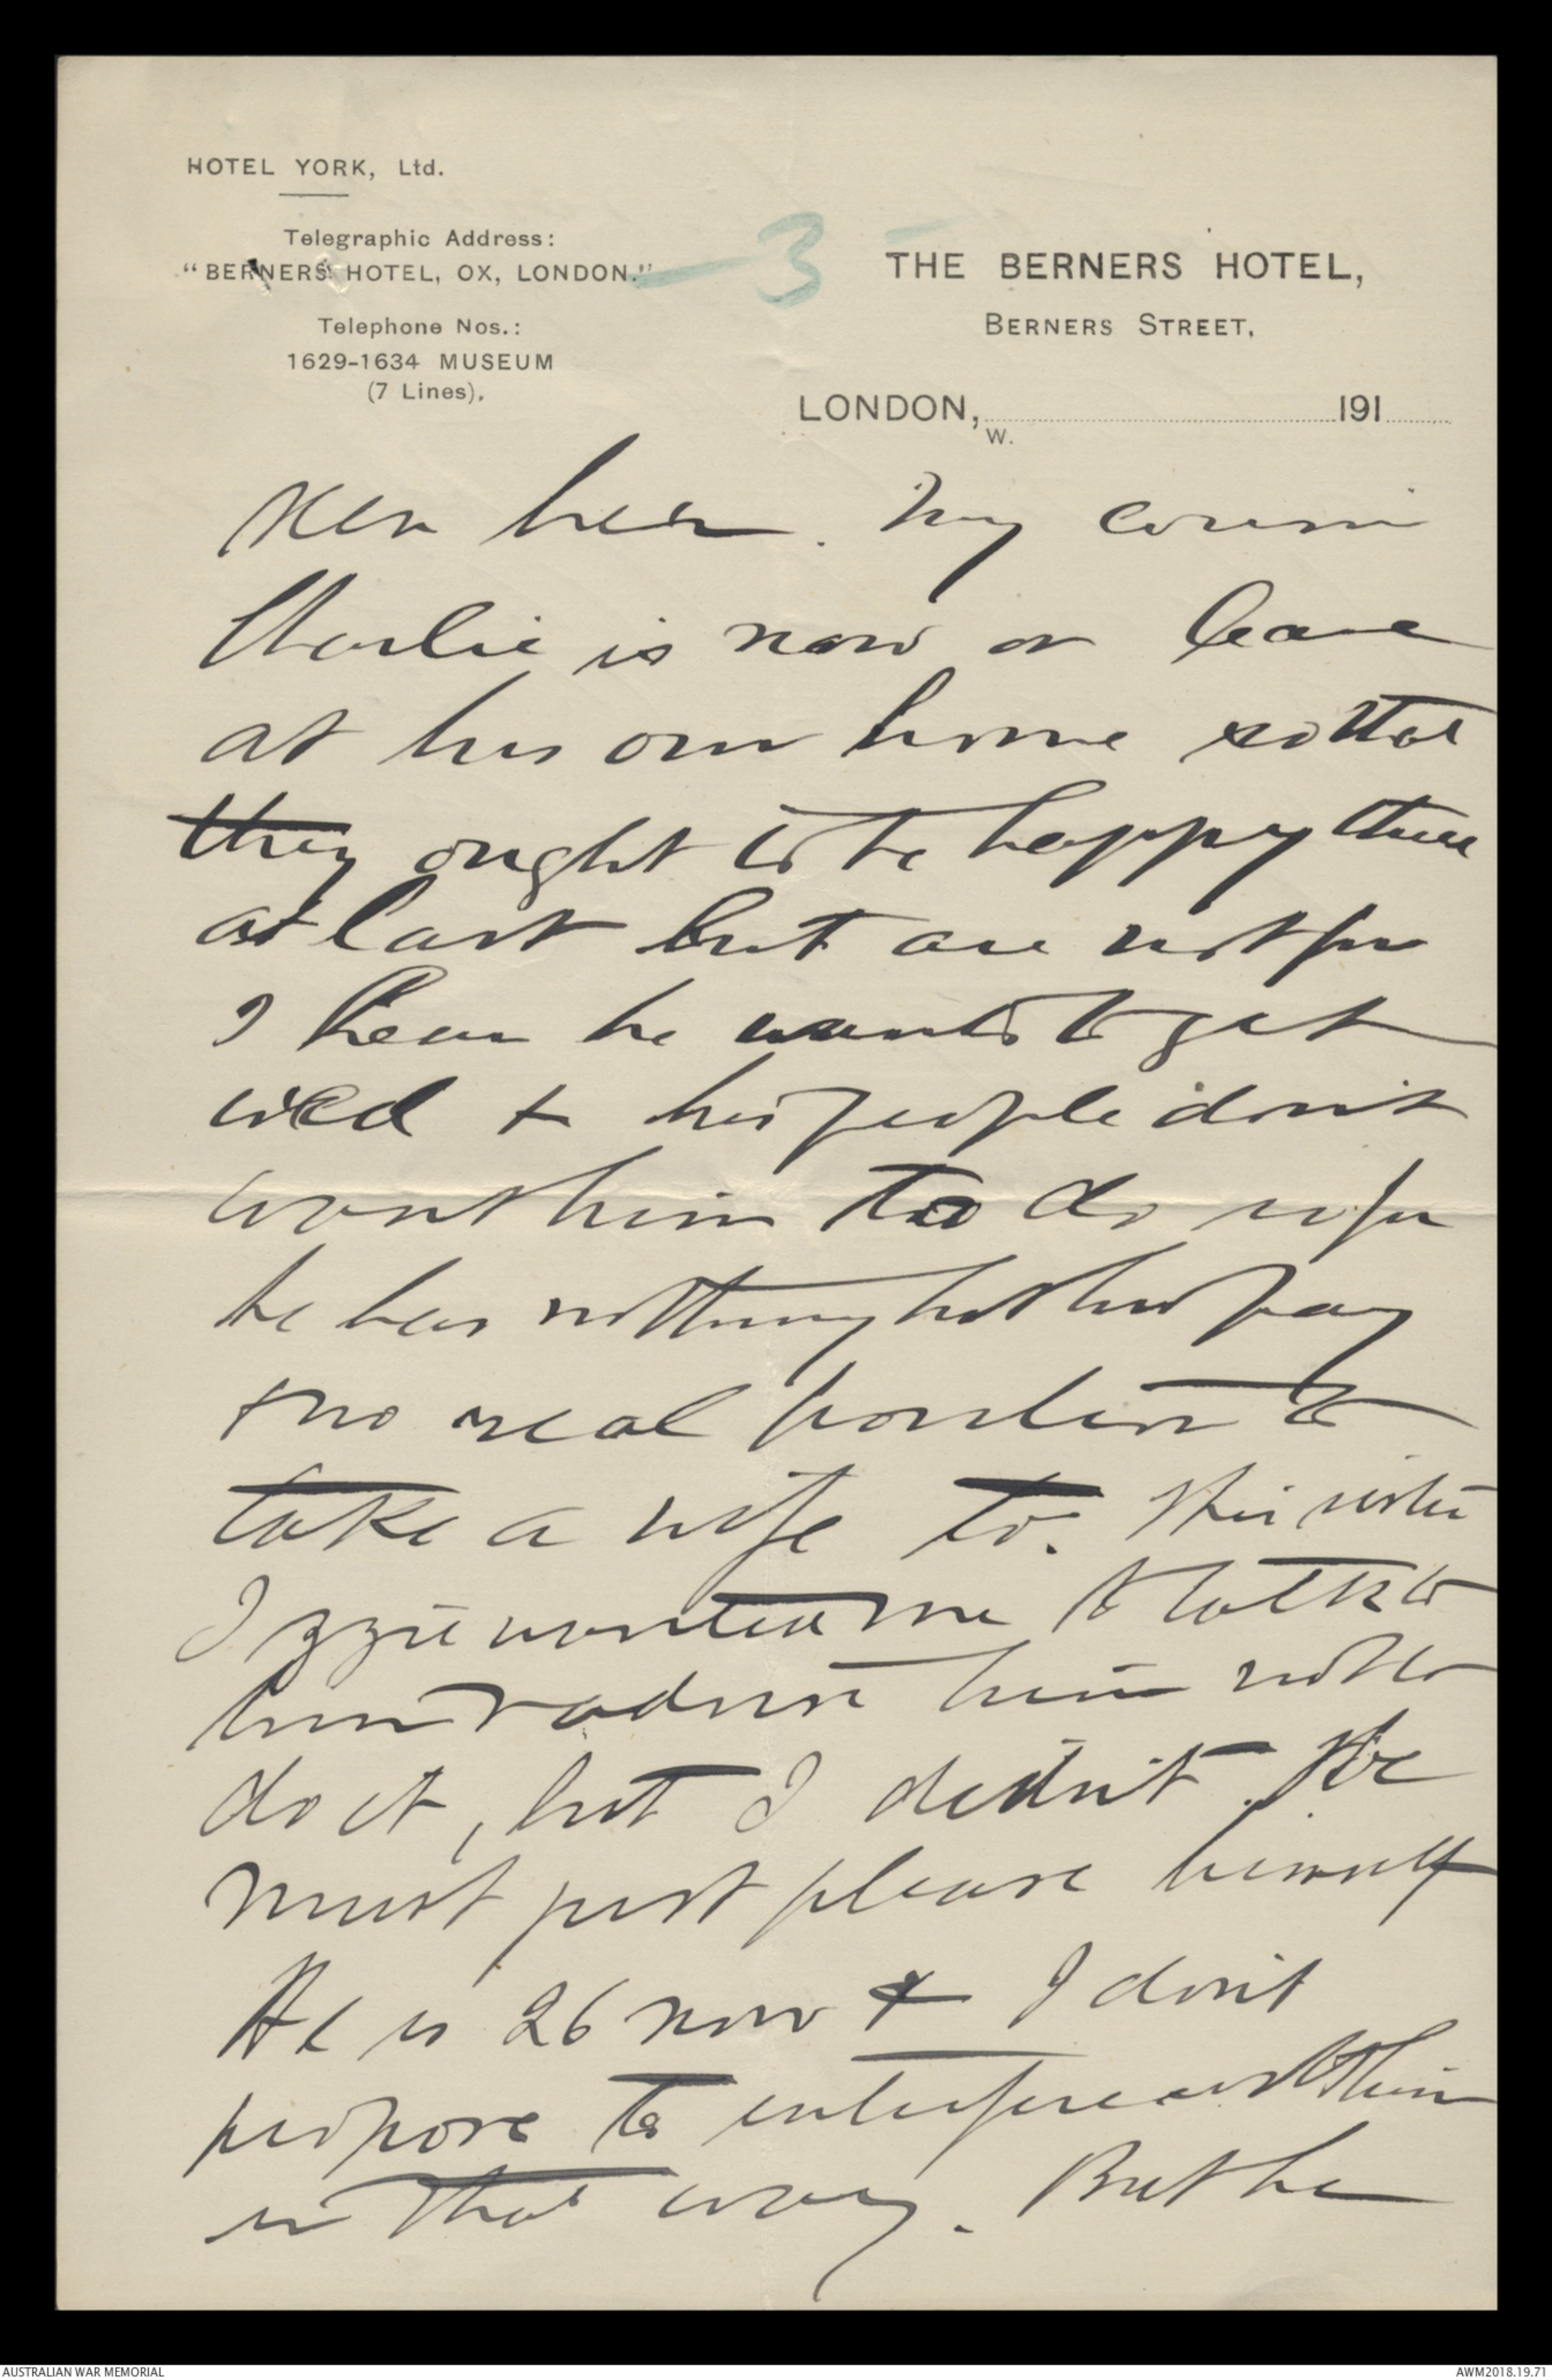 HOTEL YORK, Ltd.
Telegraphic Address:
"BERNERS HOTEL, OX, LONDON."
Telephone Nos.:
1629-1634 MUSEUM
(7 Lines).
— 3 —
THE BERNERS HOTEL,
BERNERS STREET,
LONDON, 191
W.
her. My cousin
Charlie is now on leave
at his own home so that
they ought to be happy there
at last but are not for
I hear he wants to get
wed & his people don't
want him to do so for
he has nothing but his pay
& no real position to
take a wife to. His sister
Izzie wanted me to talk to
him & advise him not to
do it, but I didn't. He
must just please himself
He is 26 now & I don't
propose to interfere with him
in that way. But he
AUSTRALIAN WAR MEMORIAL
AWM2018.19.71